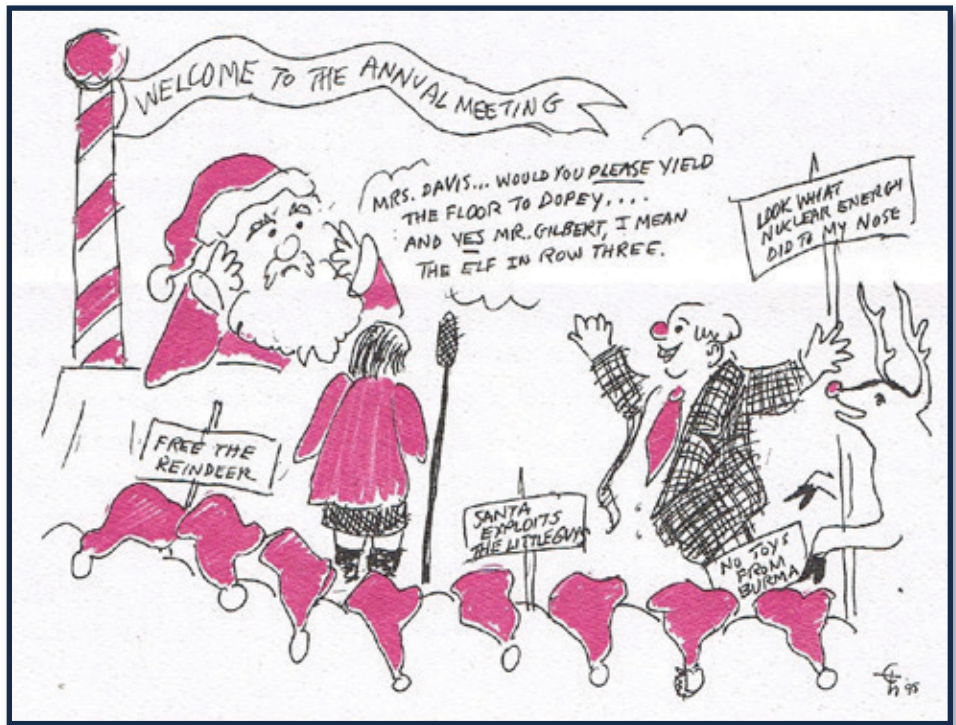 WELCOME TO THE ANNUAL MEETING
MRS. DAVIS... WOULD YOU PLEASE YIELD
THE FLOOR TO DOPEY....
AND YES MR. GILBERT, I MEAN
THE ELF IN ROW THREE.
LOOK WHAT
NUKLEAR ENERGY
DID TO MY NOSE
FREE THE
REINDEER
SANTA
EXPLOITS
THE LITTLE GUYS
NO TOYS
FROM
BURMA
'95